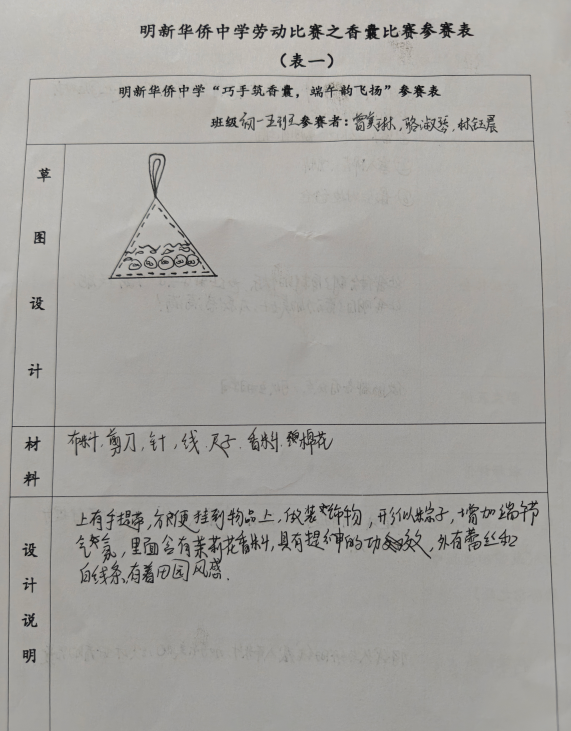 明新华侨中学劳动比赛之香囊比赛参赛表
（表一）
明新华侨中学“巧手筑香囊，端午韵飞扬”参赛表
班级初一五班参赛者：骆淑琴，林钰晨
草图设计
材料
布料、剪刀，针，线、尺子、香料、棉花
设计说明
上有手提带，方便挂到物品上，做装饰物，形似粽子，增加端午节
气氛，里面含有茉莉花香料，具有提神的功效，外有蕾丝和
白线条，有着田园风感．